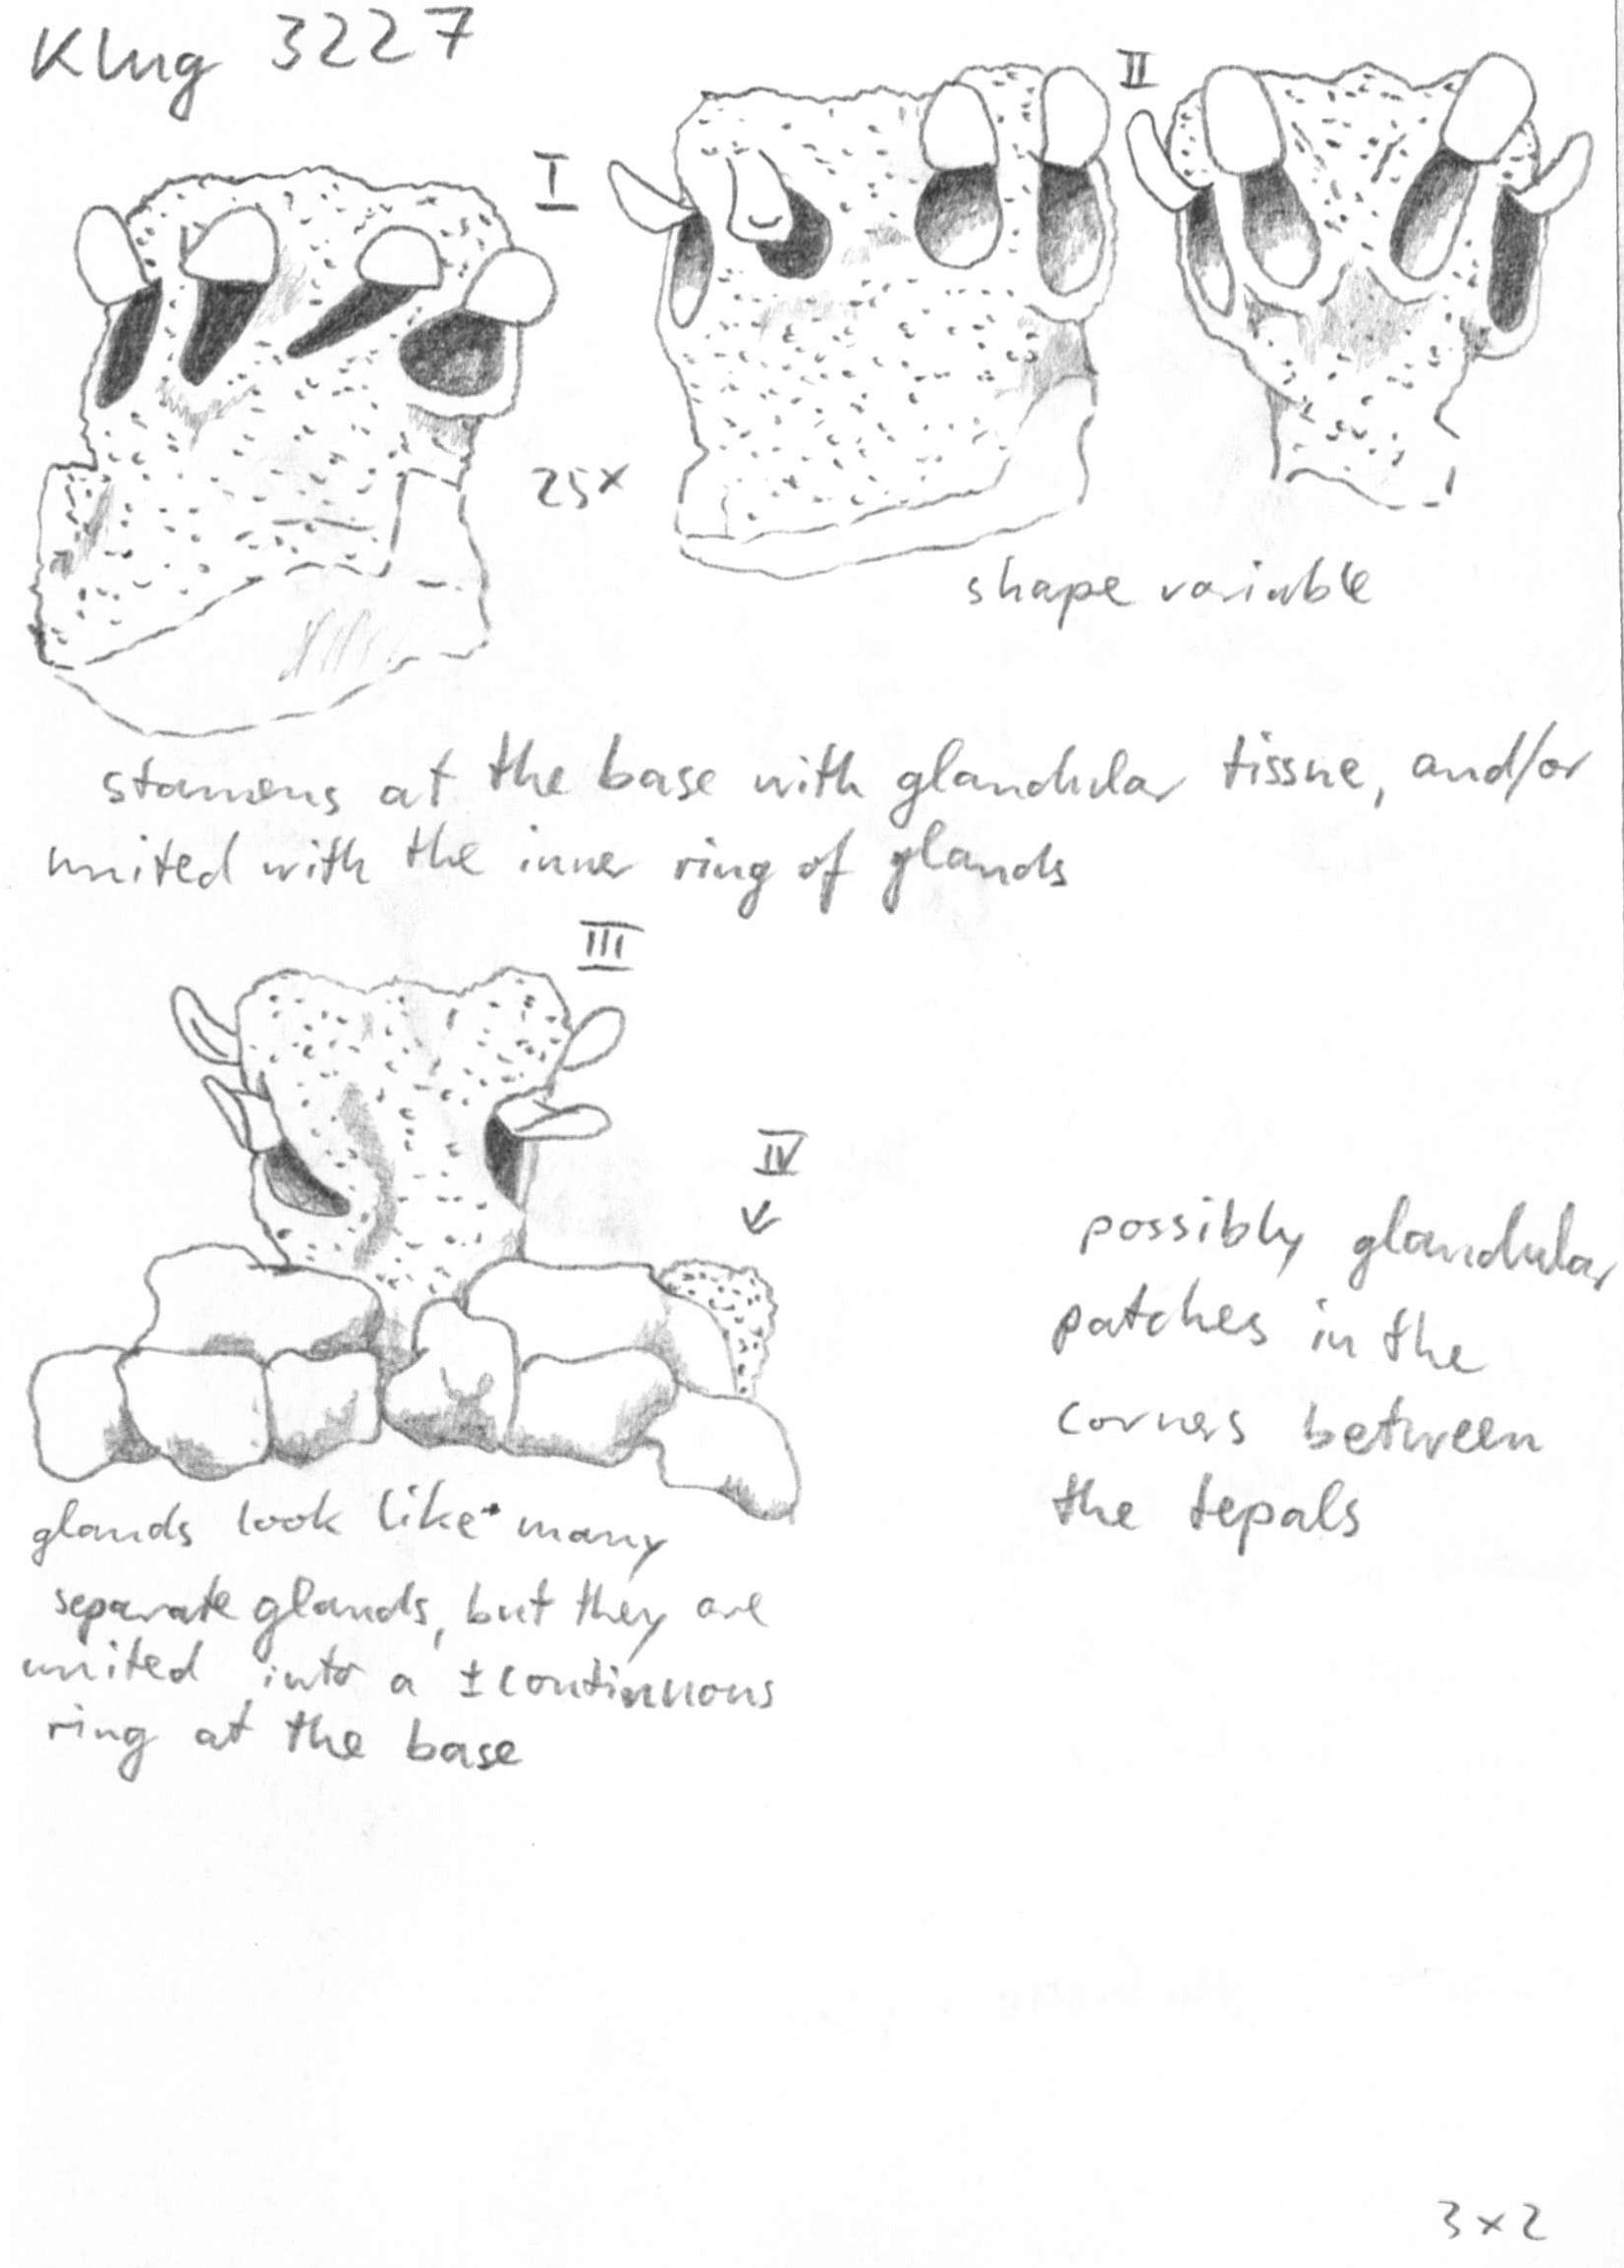 Klug 3227
I
II
25x
shape variable
stamens at the base with glandular tissue, and/or
united with the inner ring of glands
III
IV
possibly glandular
patches in the
corners between
the tepals
glands look like many
separate glands, but they are
united into a ± continuous
ring at the base
3x2